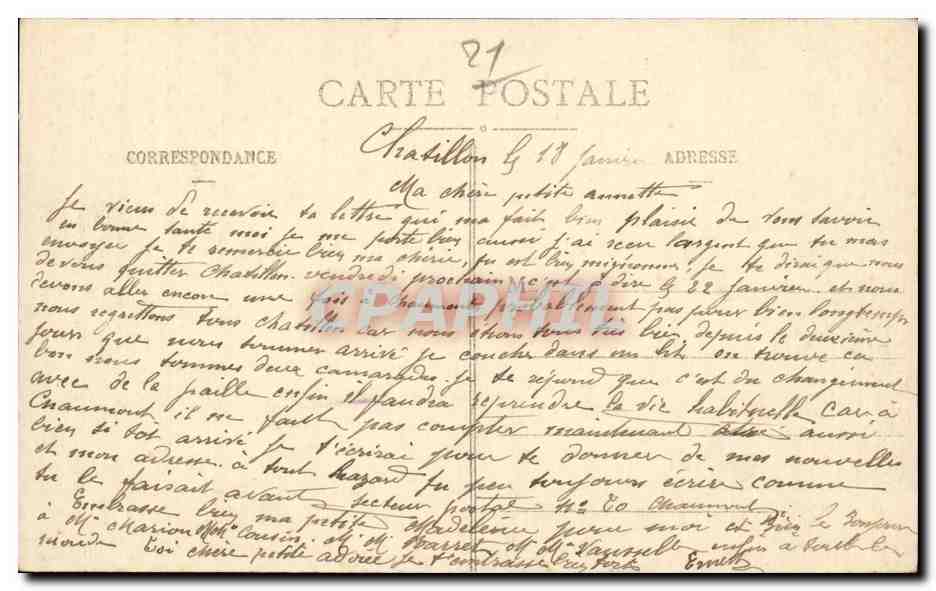 21
CARTE POSTALE
CORRESPONDANCE
ADRESSE
Chatillon le 18 Janvier
Ma chère petite annette
Je viens de recevoir ta lettre qui ma fait bien plaisir de vous savoir
en bonne santé moi je me porte bien aussi j'ai reçu l'argent que tu mas
envoyer je te remercie bien ma cherie, tu est bien mignonne, je te dirai que nous
devons quitter Chatillon vendredi prochain c'est à dire le 22 Janvier et nous
devons aller encore une fois à Chaumont probablement pas pour bien longtemps
nous regrettons tous Chatillon car nous étions tous très bien depuis le deuxième
jour que nous sommes arrivé je couche dans un lit on trouve ca
bon nous sommes deux camarades je te répond que c'est du changement
avec de la paille enfin il faudra reprendre la vie habituelle car à
Chaumont il ne faut pas compter maintenant aussi
bien si tôt arrivé je t'écrirai pour te donner de mes nouvelles
et mon adresse à tout hazard tu peu toujours écrire comme
tu le faisait avant secteur postal No Chaumont
Embrasse bien ma petite Madeleine pour moi et bien le bonjour
à Mr Marion Mr Mme Cousin Mr Mme Barret Mr Mme enfin à tout le
monde toi chère petite adorée je t'embrasse bien fort Ernest
CPAPHIL